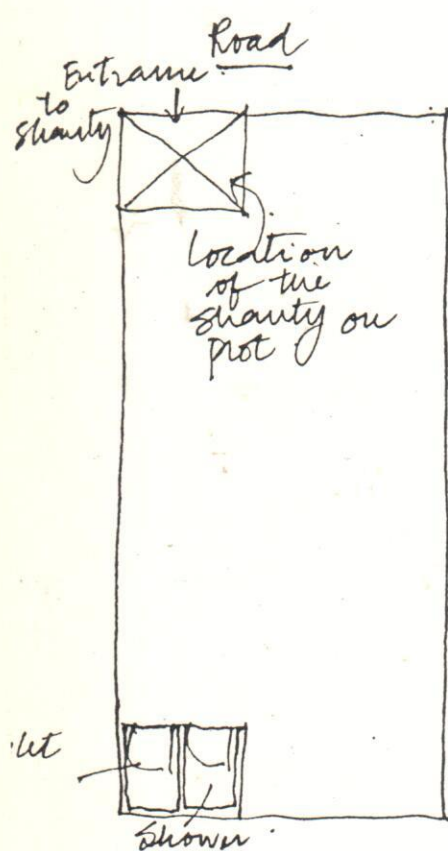 Road
Entrance
to
Shanty
Location
of the
shanty on
plot
ilet
Shower